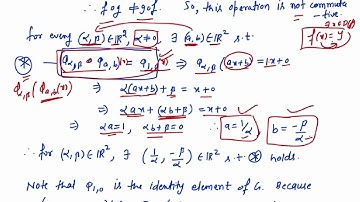 ∴ fog ≠ gof. So, this operation is not commuta
-tive.
for every (α,β) ∈ ℝ², α≠0, ∃ (a,b) ∈ ℝ² s.t.
f(x) = y
⊛ — φ_{α,β} ∘ φ_{a,b}(x) = φ_{1,0}(x) ⇒ φ_{α,β}(ax+b) = 1x+0
φ_{α,β}(φ_{a,b}(x)) ⇒ α(ax+b)+β = x+0
⇒ αax + (αb+β) = x+0
⇒ αa=1, αb+β=0 ∴ a=1/α, b = -β/α
∴ for (α,β) ∈ ℝ², ∃ (1/α, -β/α) ∈ ℝ² s.t. ⊛ holds.
Note that φ_{1,0} is the identity element of G. Because